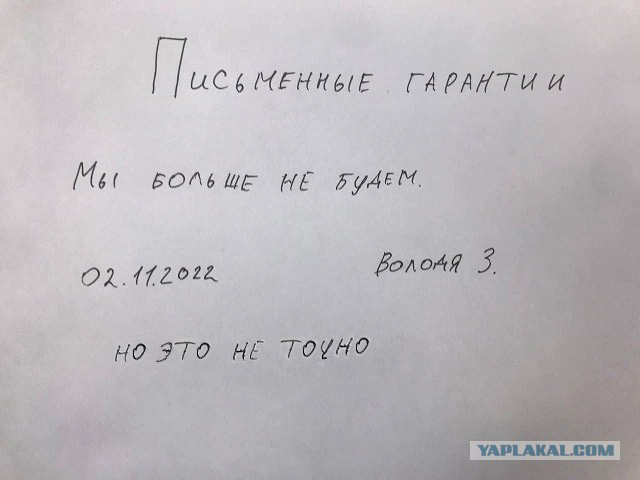 Письменные гарантии
Мы больше не будем.
02.11.2022 Володя З.
но это не точно
YAPLAKAL.COM